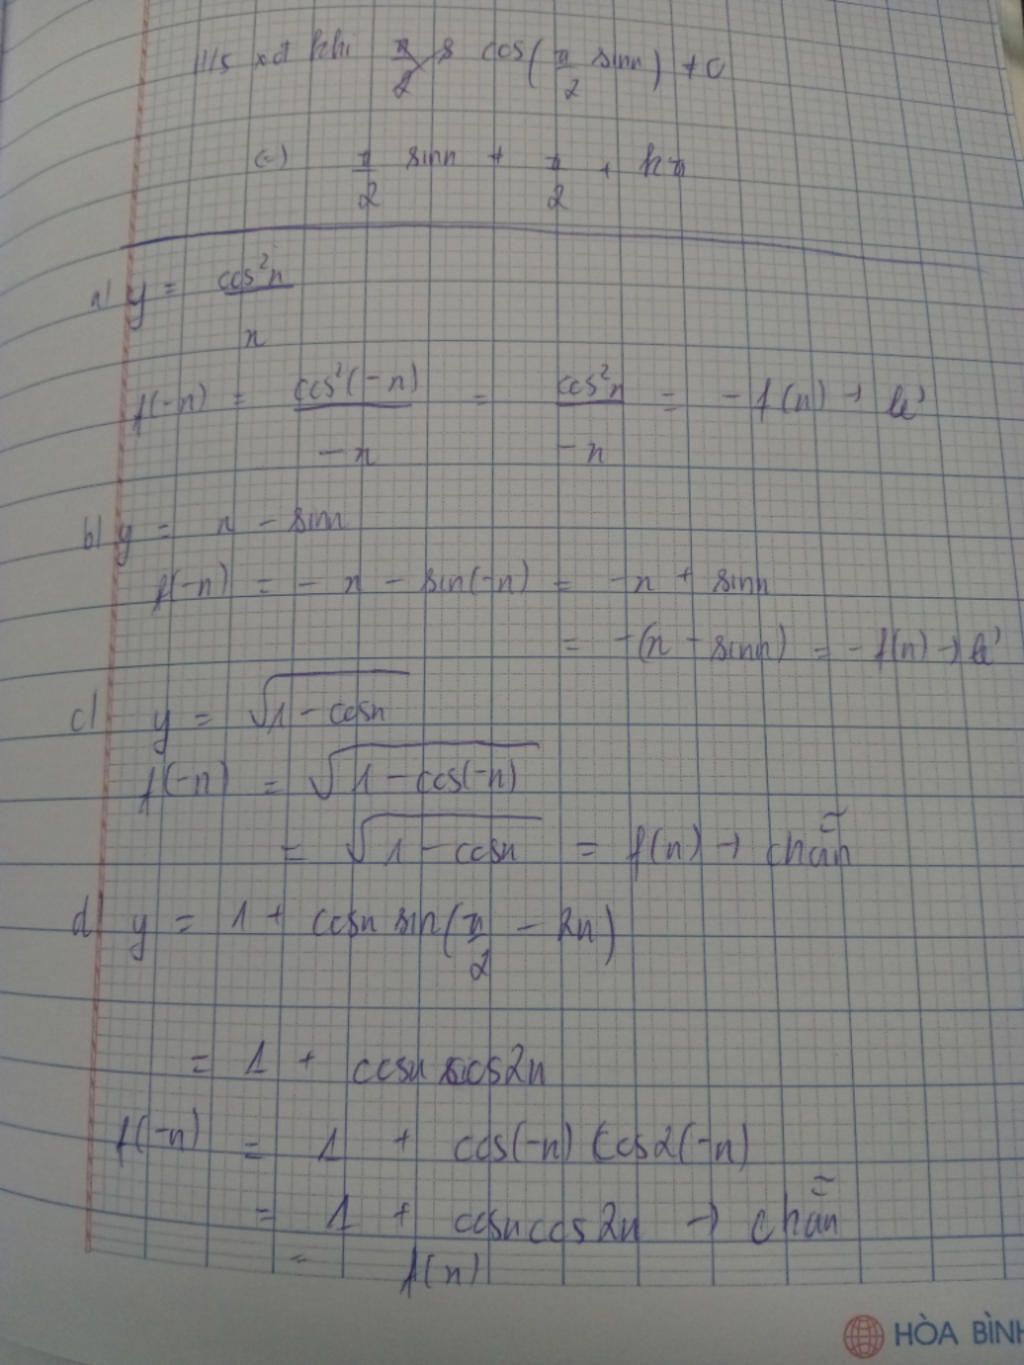 H/s xđ khi cos(π/2 sinx) ≠ 0
(=) π/2 sinx ≠ π/2 + kπ
a) y = cos²x / x
f(-x) = cos²(-x) / -x = cos²x / -x = -f(x) → lẻ
b) y = x - sinx
f(-x) = - x - sin(-x) = -x + sinx
= -(x - sinx) = -f(x) → lẻ
c) y = √1 - cosx
f(-x) = √1 - cos(-x)
= √1 - cosx = f(x) → chẵn
d) y = 1 + cosx sin(π/2 - 2x)
= 1 + cosx cos2x
f(-x) = 1 + cos(-x) cos2(-x)
= 1 + cosx cos2x → chẵn
= f(x)
HÒA BÌNH